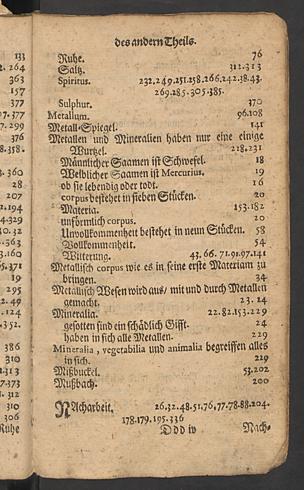 des andern Theils.
Ruhe. 76
Saltz. 312.313
Spiritus. 232.249.251.258.266.242.38.43.
269.285.305.385.
Sulphur. 370
Metallum. 96.108
Metall-Spiegel. 141
Metallen und Mineralien haben nur eine einige
Wurtzel. 218.231
Männlicher Saamen ist Schwefel. 18
Weiblicher Saamen ist Mercurius. 19
ob sie lebendig oder todt. 16
corpus bestehet in sieben Stücken. 20
Materia. 153.182
unförmlich corpus. 20
Unvollkommenheit bestehet in neun Stücken. 58
Vollkommenheit. 54
Witterung. 43.66.71.91.97.141
Metallisch corpus wie es in seine erste Materiam zu
bringen. 34
Metallisch Wesen wird aus/ mit und durch Metallen
gemacht. 23.24
Mineralia. 22.82.153.229
gesotten sind ein schädlich Gifft. 24
haben in sich alle Metallen. 229
Mineralia, vegetabilia und animalia begreiffen alles
in sich. 229
Mißbuckel. 53.202
Mußbach. 200
Nacharbeit. 26.32.48.51.76.77.78.88.204.
178.179.195.336
Ddd iv Nach-
133
2.264
363
157
377
97.377
7.299
376
8.358.
3.360
28
207
2.194
4.329
30.32
3.363
3.160
5.371
19
295
2.49
124
352.
386
310
1.313
7.373
312
310
306
Ruhe